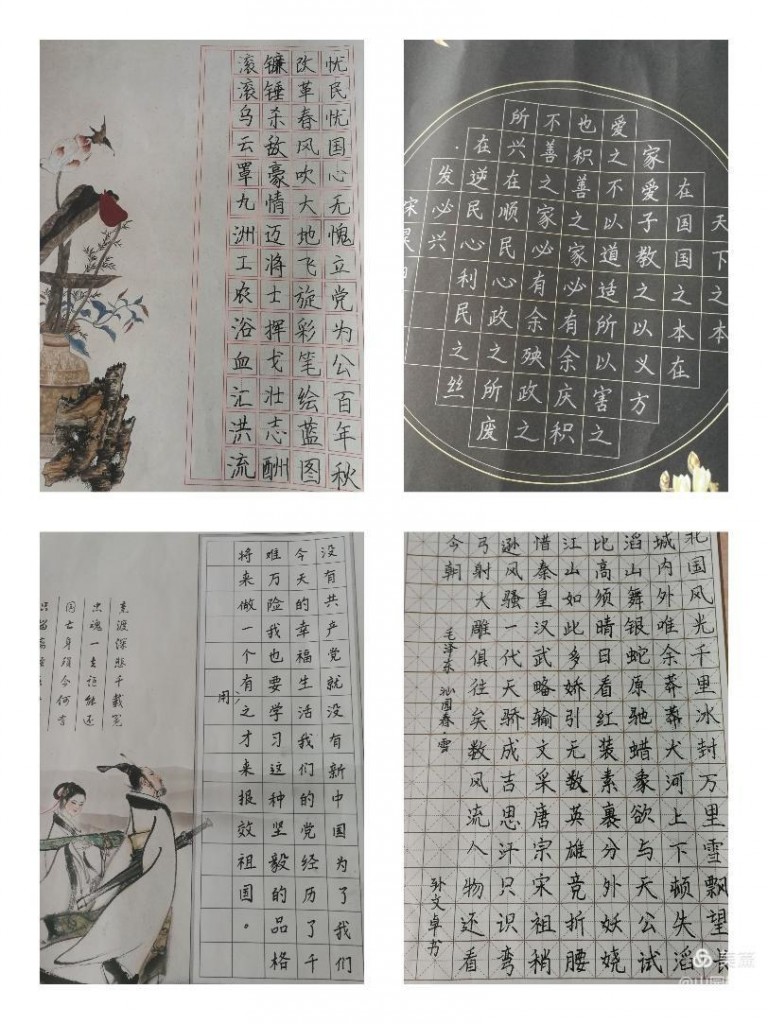 忧民忧国心无愧立党为公百年秋
改革春风吹大地飞旋彩笔绘蓝图
镰锤杀敌豪情迈将士挥戈壮志酬
滚滚乌云罩九洲工农浴血汇洪流
天下之本
在国国之本在
家爱子教之以义方
爱之不以道适所以害之
也积善之家必有余庆积
不善之家必有余殃政之
所兴在顺民心政之所废
在逆民心利民之丝
发必兴
宋
没有共产党就没有新中国为了我们
今天的幸福生活我们的党经历了千
难万险我也要学习这种坚毅的品格
将来做一个有用之才来报效祖国。
竞渡深悲千载冤
忠魂一去讵能还
国亡身殒今何有
只留离
北国风光千里冰封万里雪飘望长
城内外唯余莽莽犬河上下顿失滔
滔山舞银蛇原驰蜡象欲与天公试
比高须晴日看红装素裹分外妖娆
江山如此多娇引无数英雄竞折腰
惜秦皇汉武略输文采唐宗宋祖稍
逊风骚一代天骄成吉思汗只识弯
弓射大雕俱往矣数风流人物还看
今朝
毛泽东 沁园春·雪
孙文卓书
美篇